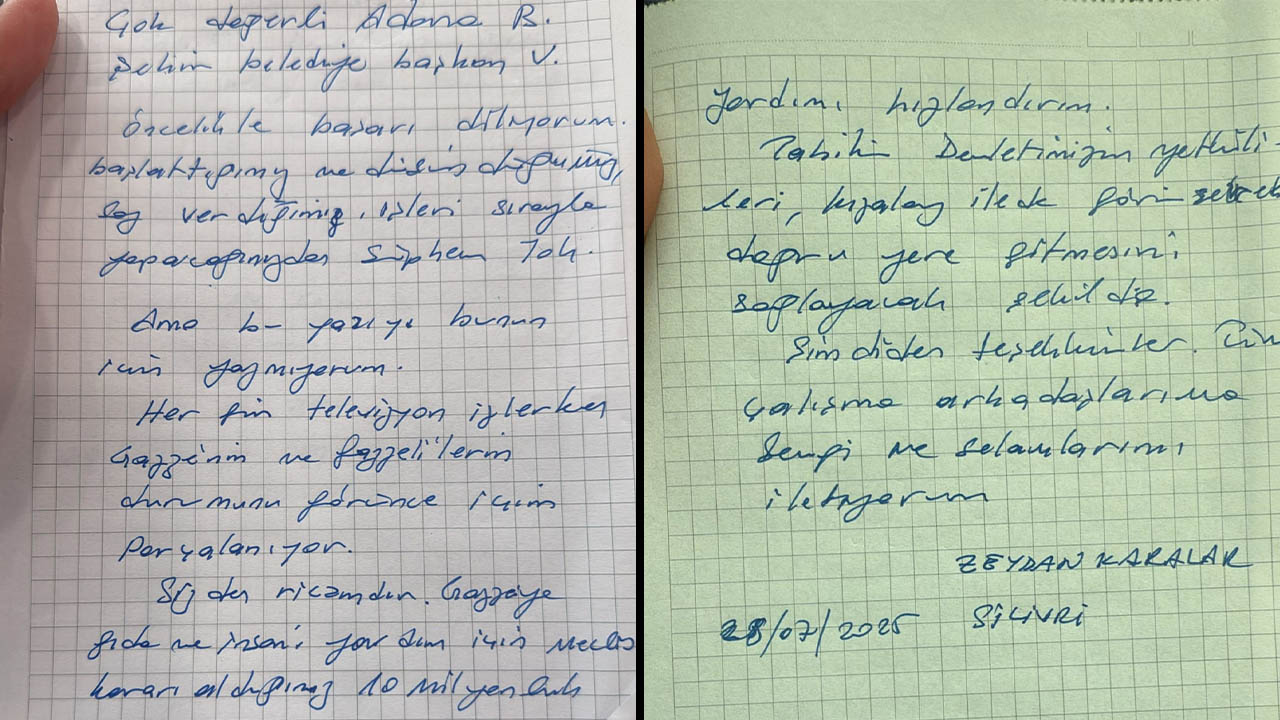 Çok değerli Adana B.
Şehir belediye başkan V.
Öncelikle başarı diliyorum.
başlattığımız ve düşündüğümüz,
söz verdiğimiz, işleri sırayla
yapacağınızdan şüphem yok.
Ama bu yazıyı bunun
için yazmıyorum.
Her gün televizyon izlerken
Gazze'nin ve gazzeli'lerin
durumunu görünce içim
parçalanıyor.
Sizden ricamdır. Gazzeye
gıda ve insani yardım için meclis
kararı aldığımız 10 milyonluk
yardımı hızlandırın.
Tabiki Devletimizin yetkili-
leri, kızılay ile
doğru yere gitmesini
sağlayacak şekilde.
Şimdiden teşekkürler. Tüm
çalışma arkadaşlarıma
Sevgi ve selamlarımı
iletiyorum
ZEYDAN KARALAR
28/07/2025 SİLİVRİ